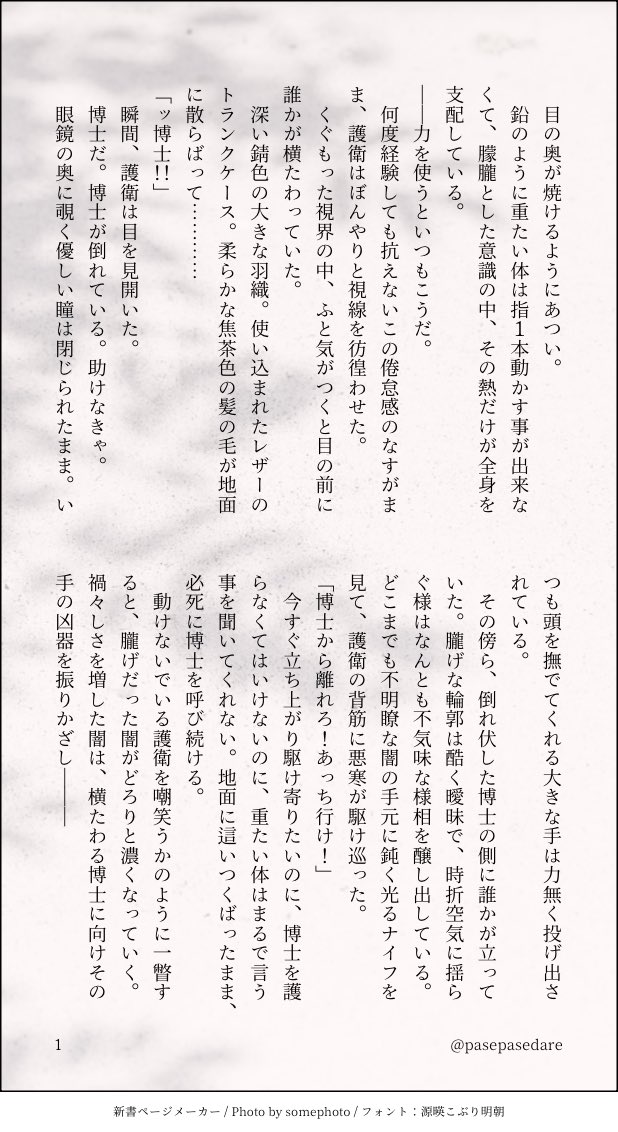 目の奥が焼けるようにあつい。
鉛のように重たい体は指1本動かす事が出来な
くて、朦朧とした意識の中、その熱だけが全身を
支配している。
――力を使うといつもこうだ。
何度経験しても抗えないこの倦怠感のなすがま
ま、護衛はぼんやりと視線を彷徨わせた。
くぐもった視界の中、ふと気がつくと目の前に
誰かが横たわっていた。
深い錆色の大きな羽織。使い込まれたレザーの
トランクケース。柔らかな焦茶色の髪の毛が地面
に散らばって…………
「ッ博士!!」
瞬間、護衛は目を見開いた。
博士だ。博士が倒れている。助けなきゃ。
眼鏡の奥に覗く優しい瞳は閉じられたまま。い
つも頭を撫でてくれる大きな手は力無く投げ出さ
れている。
その傍ら、倒れ伏した博士の側に誰かが立って
いた。朧げな輪郭は酷く曖昧で、時折空気に揺ら
ぐ様はなんとも不気味な様相を醸し出している。
どこまでも不明瞭な闇の手元に鈍く光るナイフを
見て、護衛の背筋に悪寒が駆け巡った。
「博士から離れろ！あっち行け！」
今すぐ立ち上がり駆け寄りたいのに、博士を護
らなくてはいけないのに、重たい体はまるで言う
事を聞いてくれない。地面に這いつくばったまま、
必死に博士を呼び続ける。
動けないでいる護衛を嘲笑うかのように一瞥す
ると、朧げだった闇がどろりと濃くなっていく。
禍々しさを増した闇は、横たわる博士に向けその
手の凶器を振りかざし――――
1
@pasepasedare
新書ページメーカー / Photo by somephoto / フォント：源暎こぶり明朝